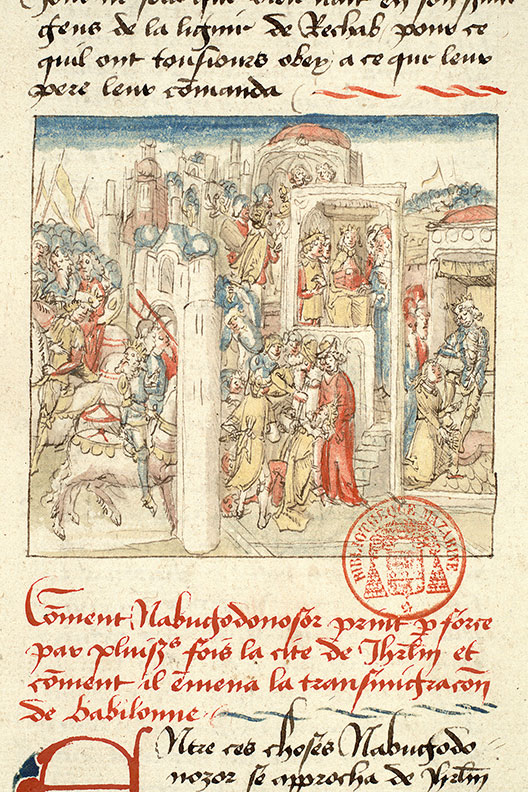 gens de la ligniee de Rechab pour ce
quil ont tousiours obey a ce que leur
pere leur cōmanda
BIBLIOTHEQUE MAZARINE
Cōment Nabugodonosor print p force
par plui𝑠ʳˢ fois la cite de Jhrlm et
cōment il ēmena la transmigracōn
de babilonne
Entre ces choses Nabugodo
nozor se approcha de Jhrlm